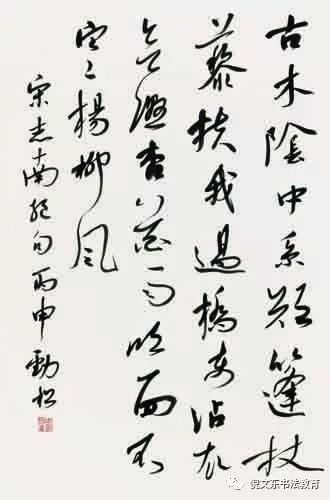 古木陰中系短篷杖
藜扶我過橋東沾衣
欲濕杏花雨吹面不
寒楊柳風
宋志南絕句丙申勁松
倪文东书法教育